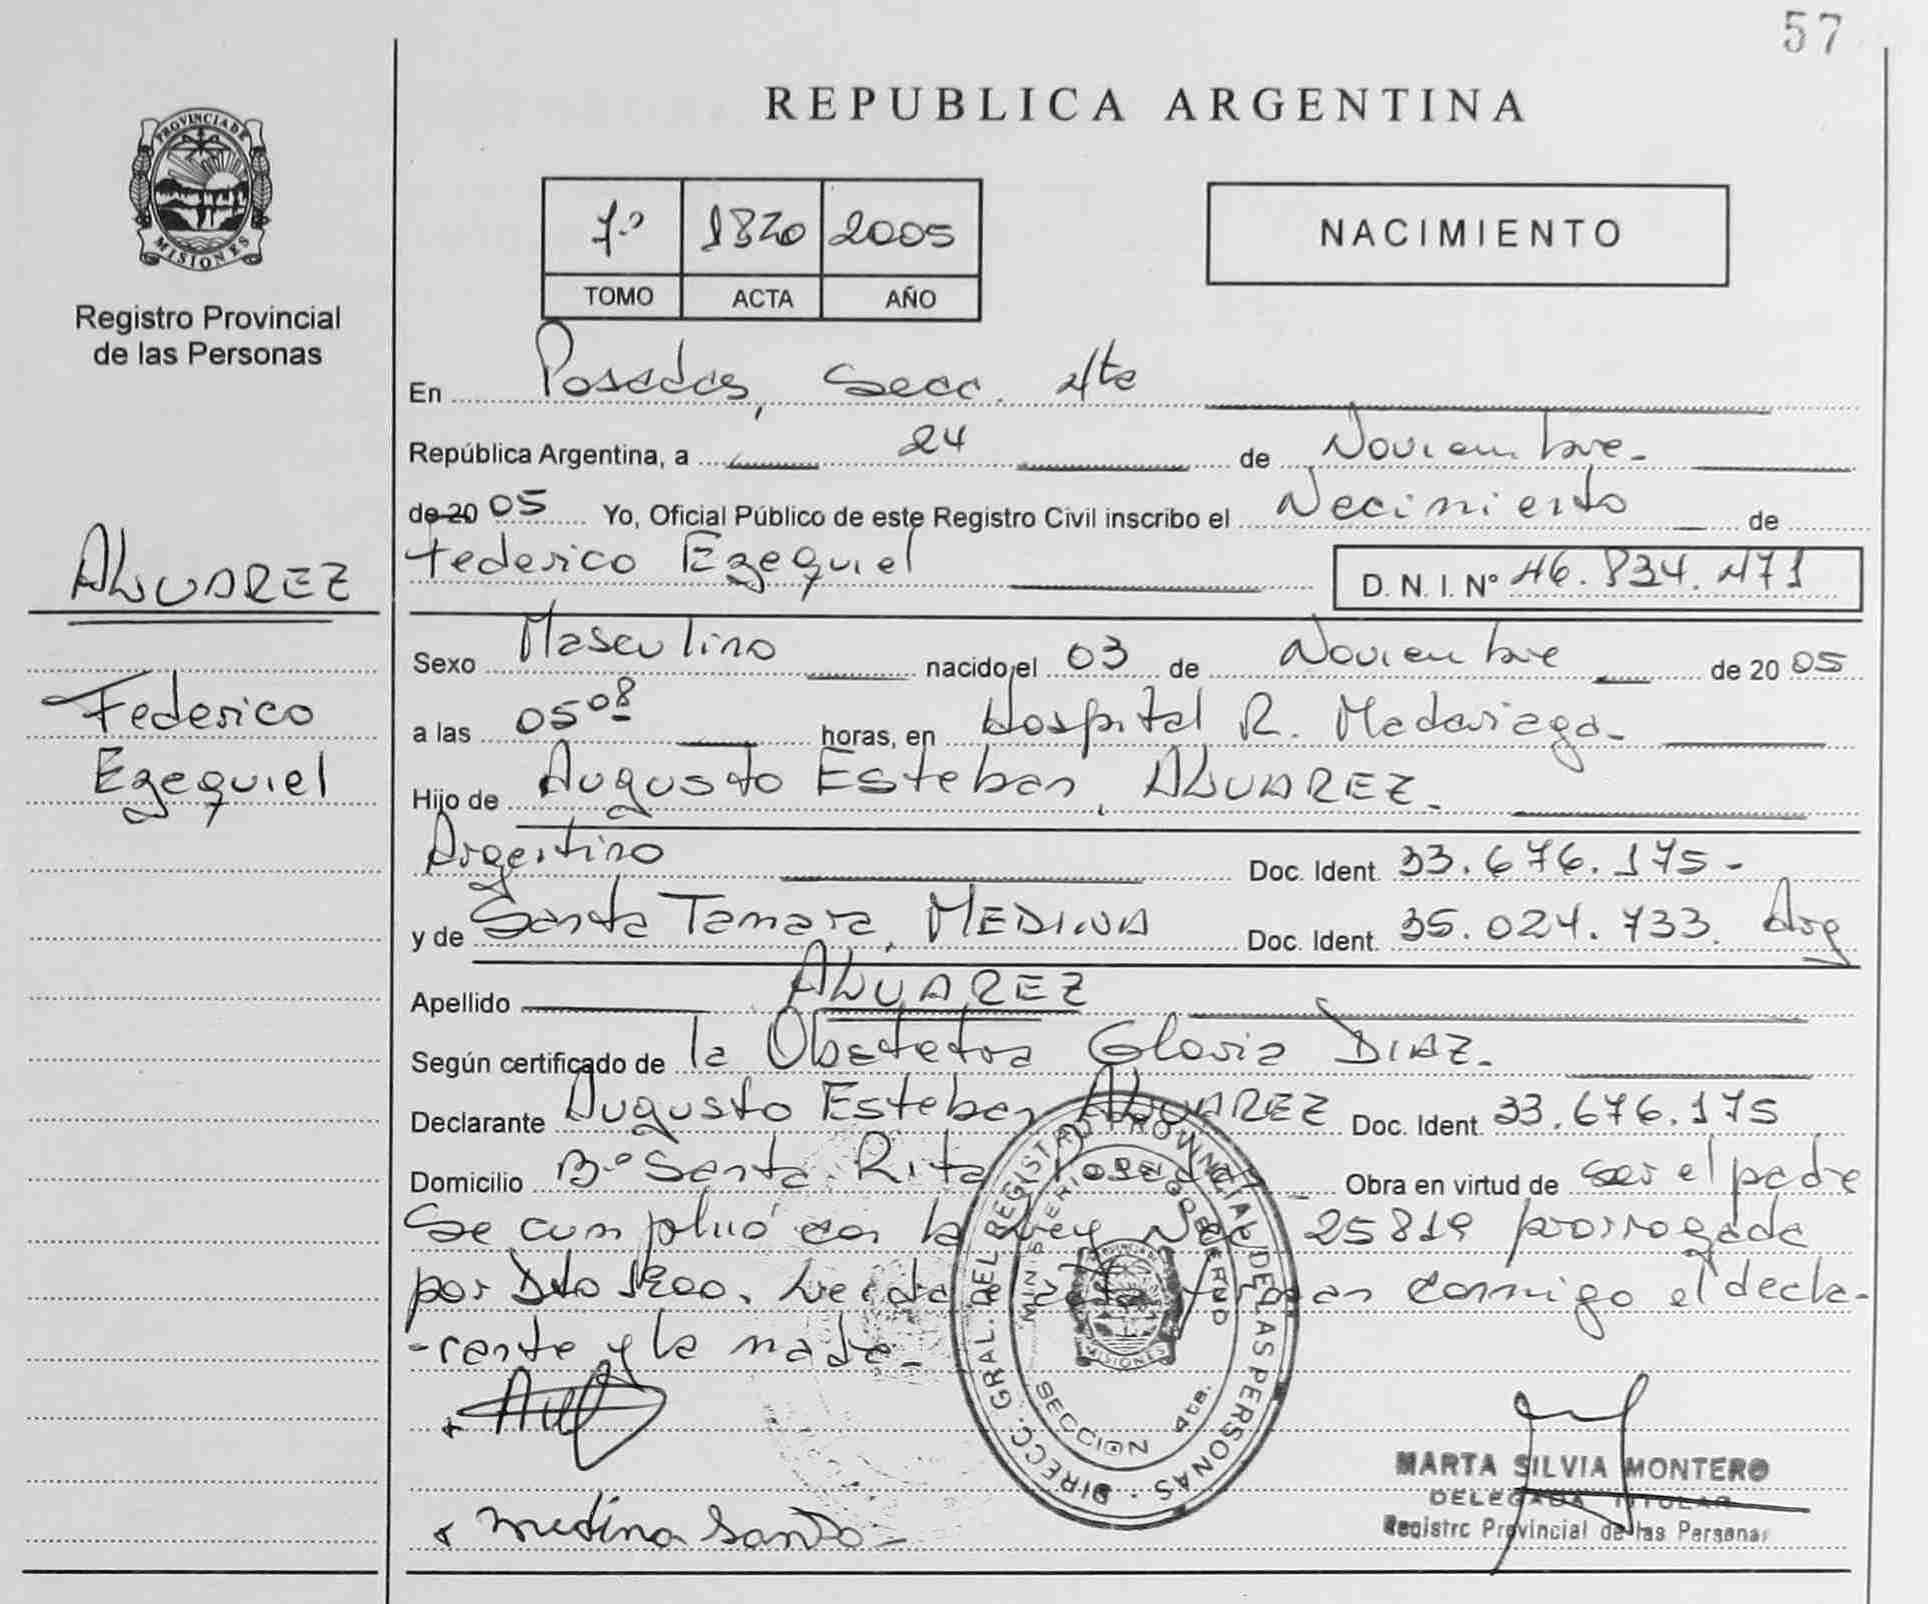 57
REPUBLICA ARGENTINA
PROVINCIA DE
MISIONES
Registro Provincial
de las Personas
7º 1820 2005
TOMO ACTA AÑO
NACIMIENTO
En Posadas, Secc. 4ta
República Argentina, a 24 de Noviembre
de 20 05 Yo, Oficial Público de este Registro Civil inscribo el Nacimiento de
Federico Ezequiel D. N. I. Nº 46.834.471
ALVAREZ
Federico
Ezequiel
Sexo Masculino nacido el 03 de Noviembre de 20 05
a las 05 08 horas, en Hospital R. Madariaga.
Hijo de Augusto Esteban, ALVAREZ.
Argentino Doc. Ident. 33.676.175-
y de Santa Tamara, MEDINA Doc. Ident. 35.024.733. Arg
Apellido ALVAREZ
Según certificado de la Obstetra Gloria DIAZ.
Declarante Augusto Esteban ALVAREZ Doc. Ident. 33.676.175
Domicilio Bº Santa Rita Posadas Obra en virtud de ser el padre
Se cumplió con la Ley Nac 25819 prorrogada
por Dto 1200. Leída el acta firman conmigo el decla-
-rante y la madre-
DIRECC. GRAL. DEL REGISTRO PROVINCIAL DE LAS PERSONAS
MINISTERIO DE GOBIERNO
PROVINCIA DE
MISIONES
SECCION 4ta.
Medina Santa
MARTA SILVIA MONTERO
DELEGADA TITULAR
Registro Provincial de las Personas